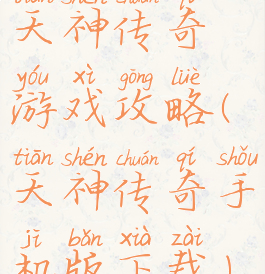 tiān shén chuán qí
天神传奇
yóu xì gōng lüè
游戏攻略(
tiān shén chuán qí shǒu
天神传奇手
jī bǎn xià zài
机版下载)